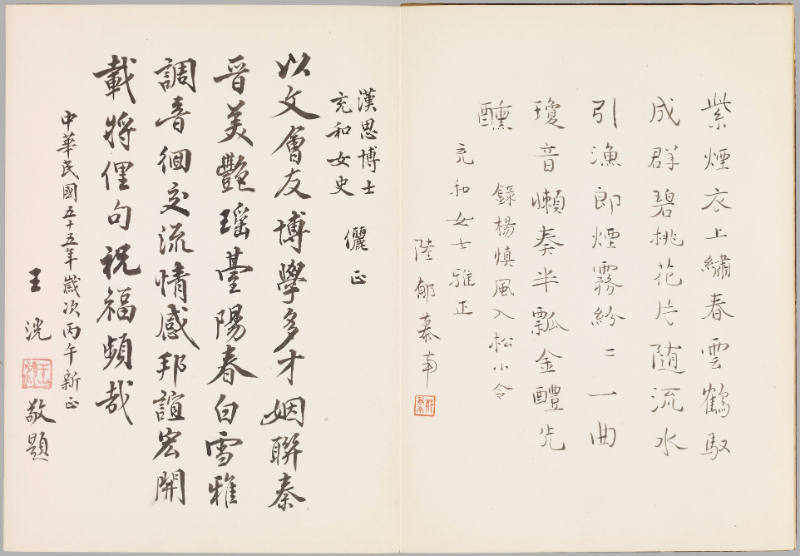 紫煙衣上繡春雲鶴馭
成群碧桃花片随流水
引漁郎煙霧紛〻一曲
瓊音懶奏半瓢金醴先
醺
錄楊慎風入松小令
充和女士雅正
陸
漢思博士
充和女史 儷正
以文會友博學多才姻聯秦
晉美艷瑶臺陽春白雪雅
調音徊交流情感邦誼宏開
載將俚句祝福頻哉
中華民國五十五年歲次丙午新正
王洸
敬題